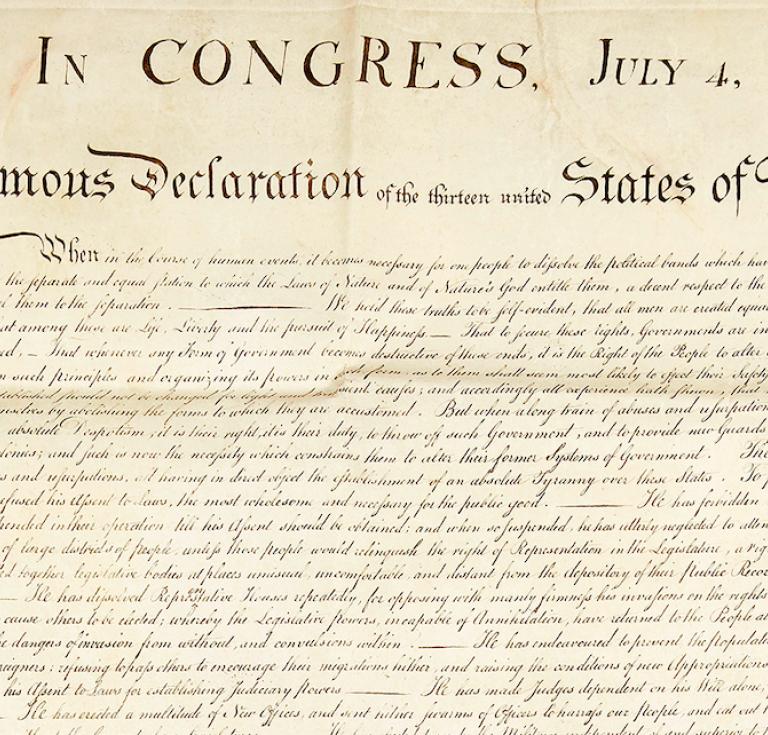 In CONGRESS, July 4,
mous Declaration of the thirteen united States of
When in the Course of human events, it becomes necessary for one people to dissolve the political bands which hav
the separate and equal station to which the Laws of Nature and of Nature's God entitle them, a decent respect to the
l them to the separation. We hold these truths to be self-evident, that all men are created equa
at among these are Life, Liberty and the pursuit of Happiness. — That to secure these rights, Governments are in
ed, — That whenever any Form of Government becomes destructive of these ends, it is the Right of the People to alter
n such principles and organizing its powers in such form, as to them shall seem most likely to effect their Safety
tablished should not be changed for light and transient causes; and accordingly all experience hath shewn, that
mselves by abolishing the forms to which they are accustomed. But when a long train of abuses and usurpation
absolute Despotism, it is their right, it is their duty, to throw off such Government, and to provide new Guards
lonies; and such is now the necessity which constrains them to alter their former Systems of Government. The
s and usurpations, all having in direct object the establishment of an absolute Tyranny over these States. To
efused his Assent to Laws, the most wholesome and necessary for the public good. — He has forbidden
pended in their operation till his Assent should be obtained; and when so suspended, he has utterly neglected to atten
of large districts of people, unless those people would relinquish the right of Representation in the Legislature, a rig
ed together legislative bodies at places unusual, uncomfortable, and distant from the depository of their Public Reco
— He has dissolved Representative Houses repeatedly, for opposing with manly firmness his invasions on the rights
cause others to be elected; whereby the Legislative powers, incapable of Annihilation, have returned to the People at
he dangers of invasion from without, and convulsions within. — He has endeavoured to prevent the populati
reigners; refusing to pass others to encourage their migrations hither, and raising the conditions of new Appropriations
his Assent to Laws for establishing Judiciary powers — He has made Judges dependent on his Will alone,
— He has erected a multitude of New Offices, and sent hither swarms of Officers to harrass our People, and eat out